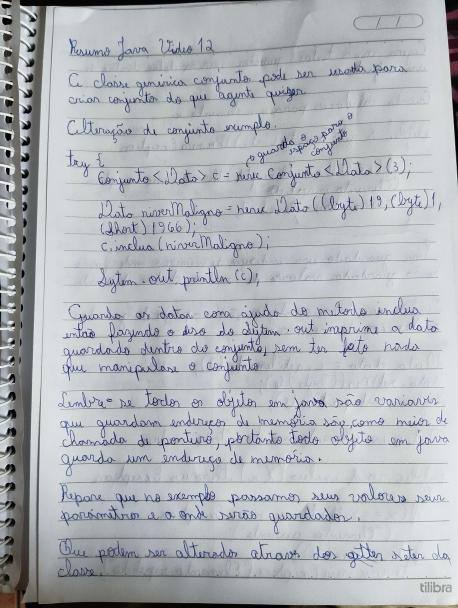 Resumo Java Video 12
A classe genérica conjunto pode ser usada para
criar conjunto do que agente quiser
Alteração de conjunto exemplo.
o guarda o
espaço para o
conjunto
try {
Conjunto <Data> c = new Conjunto <Data> (3);
Data niverMaligno = new Data ((byte) 19, (byte) 1,
(short) 1966);
c.inclua (niverMaligno);
Sytem.out.println (c);
Guarda as datas com a ajuda do metodo inclua
então fazendo o uso do Sytem.out imprime a data
guardada dentro do conjunto, sem ter feto nada
que manipulase o conjunto
Lembra-se todos os objetos em java são variaveis
que guardam endereços de memória são como meior de
chamada de ponturo, portanto todo objeto em java
guarda um endereço de memória.
Repare que no exemplo passamos seus valores seus
parâmetros e a onde serão guardados.
Que podem ser alterados atraves dos getter seter da
classe.
tilibra